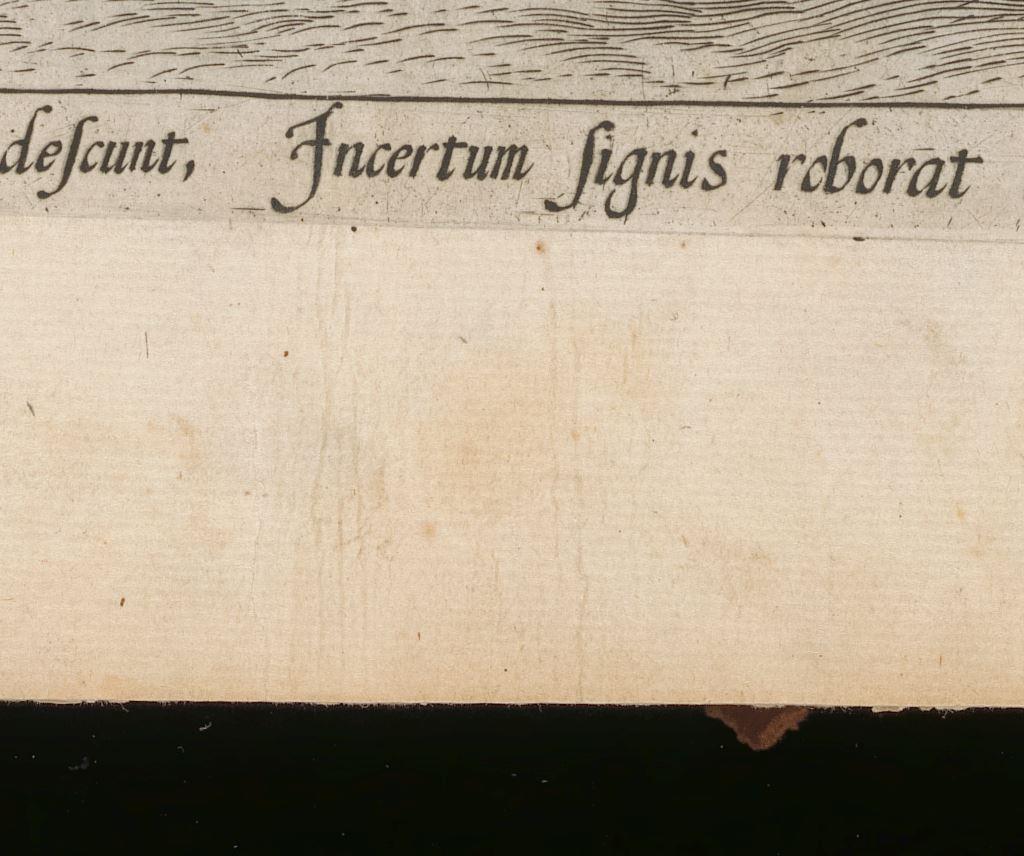 deſcunt, Incertum ſignis roborāt